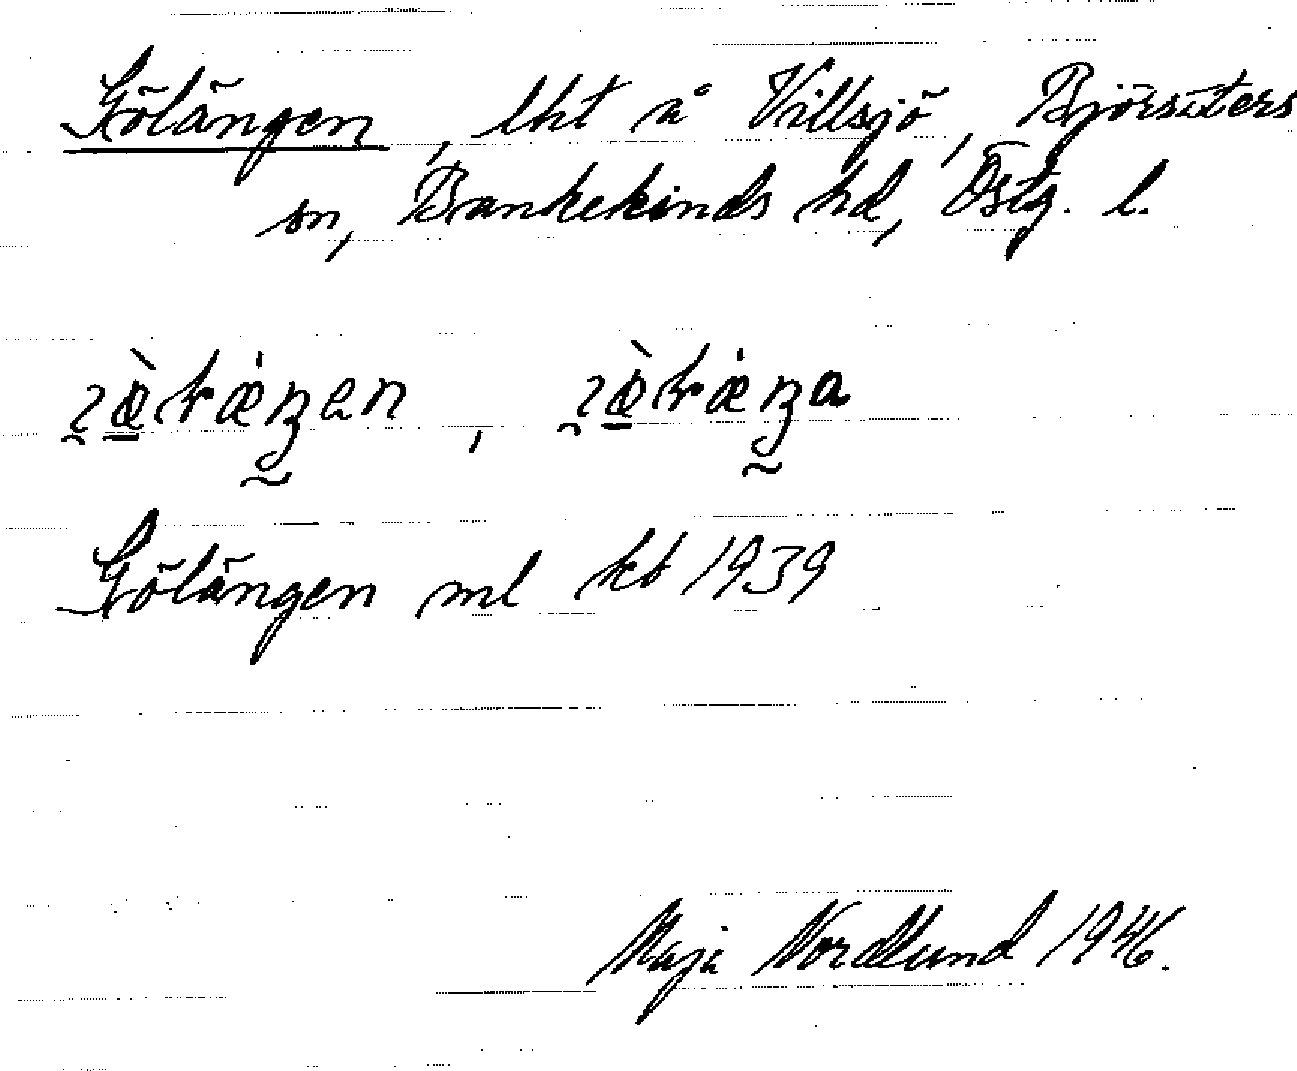 Gölängen, lht å Villsjö, Björsäters
sn, Bankekinds hd, Östg. l.
Gölängen ml kb 1939
Maja Nordlund 1946.